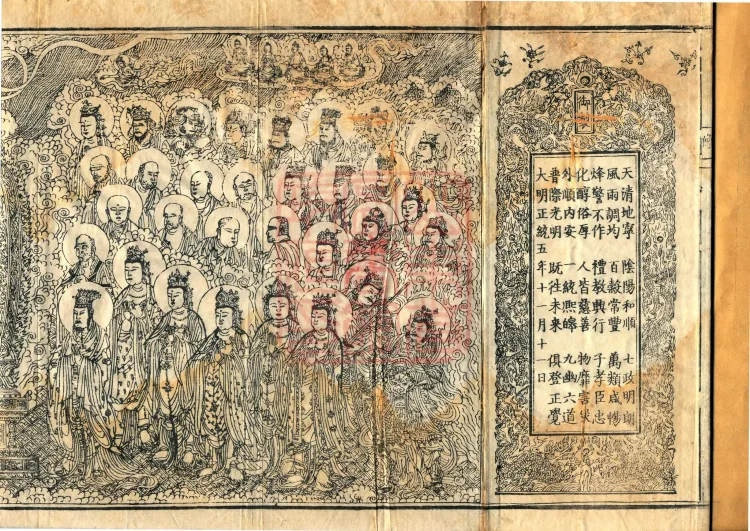 御
天清地寧 陰陽和順 七政明朗
風雨調均 百穀常豐 萬類咸暢
烽警不作 禮教興行 子孝臣忠
化醇俗厚 人皆慈善 物靡害災
外順內安 一統熙皞 九幽六道
普際光明 既往未來 俱登正覺
大明正統五年十一月十一日